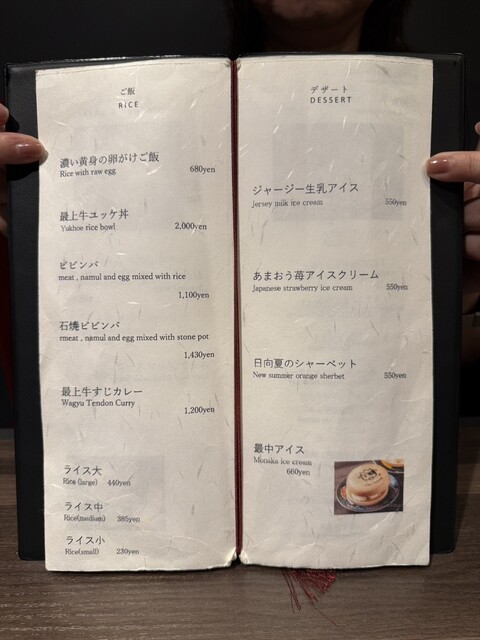 ご飯
RICE
濃い黄身の卵がけご飯
Rice with raw egg 680yen
最上牛ユッケ丼
Yukhoe rice bowl 2,000yen
ビビンバ
meat , namul and egg mixed with rice
1,100yen
石焼ビビンバ
rmeat , namul and egg mixed with stone pot
1,430yen
最上牛すじカレー
Wagyu Tendon Curry
1,200yen
ライス大
Rice (large) 440yen
ライス中
Rice(medium) 385yen
ライス小
Rice(small) 230yen
デザート
DESSERT
ジャージー生乳アイス
Jersey milk ice cream 550yen
あまおう苺アイスクリーム
Japanese strawberry ice cream 550yen
日向夏のシャーベット
New summer orange sherbet 550yen
最中アイス
Monaka ice cream
660yen